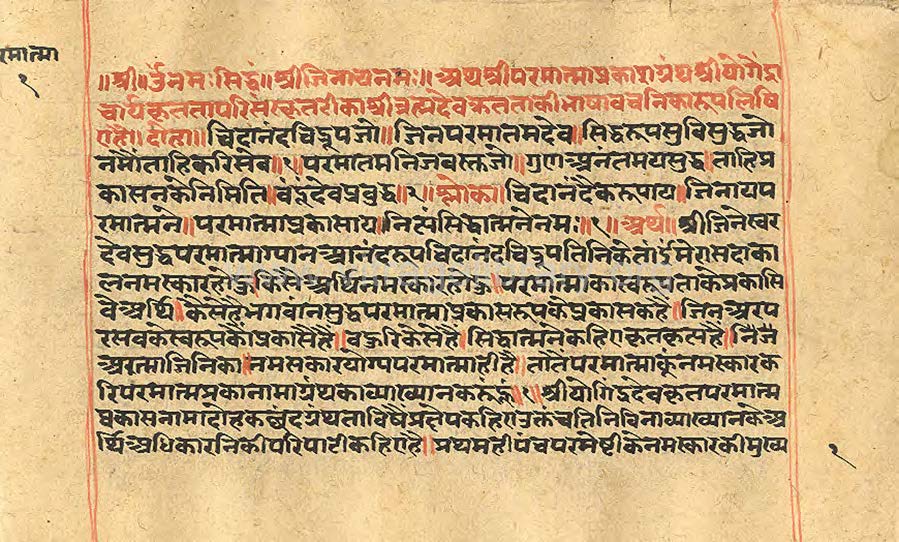 रमात्मा
१
॥श्री॥र्उनमःसिद्धं॥श्रीजिनायनमः॥अथश्रीपरमात्माप्रकाशग्रंथश्रीयोगेंद्रा
चार्यकृततापरिसंस्कृतटीकाश्रीब्रह्मदेवकृतताकीभाषावचनिकारूपलिषि
एहै॥दोहा॥चिदानंदचिद्रूपजो॥जिनपरमातमदेव॥सिद्धरूपसुविसुद्धजो
नमोंताहिकरिसेव॥१॥परमातमनिजवस्तजो॥गुणअनंतमयसुद्ध॥ताहिप्र
कासनकेनिमिति॥वंदूंदेवप्रबुद्ध॥२॥श्लोक॥चिदानंदैकरूपाय॥जिनायप
रमात्मने॥परमात्माप्रकासाय॥नित्यंसिद्धात्मनेनमः॥१॥अर्थ॥श्रीजिनेस्वर
देवसुद्धपरमात्माग्यानआनंदरूपचिदानंदचिद्रूपतिनिकेतांईमेरासदाका
लनमस्कारहोहु॥किसअर्थिनमस्कारहोहु॥परमात्माकास्वरूपताकेप्रकासि
वेअर्थि॥कैसेहैभगवानसुद्धपरमात्माप्रकासरूपकेप्रकासकहै॥जिनअरप
रसबकेस्वरूपकोंप्रकासैहै॥बहुरिकैसेहै॥सिद्धात्मनेकहिएकृतकृत्यहै॥निज
आत्माजिनिका॥नमसकारयोग्यपरमात्माहीहै॥तातैंपरमात्माकूंनमस्कारक
रिपरमात्मप्रकानामाग्रंथकाव्याख्यानकरूंहूं॥१॥श्रीयोगिंद्रदेवकृतपरमात्म
प्रकासनामादोहकछंदग्रंथताविषैप्रक्षेपकहिएउक्तंचतिनिविनाव्याख्यानकेअ
र्थिअधिकारनिकीपरिपाटीकहिएहै॥प्रथमहीपंचपरमेष्टीकेनमस्कारकीमुख्य
१